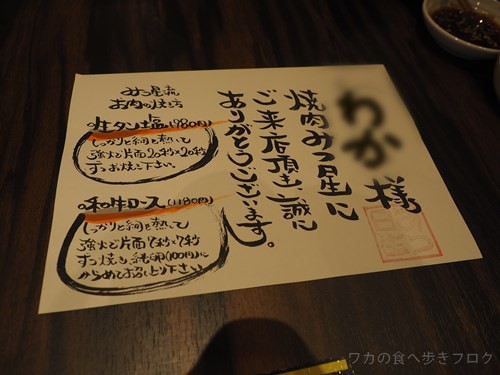 わか 様
焼肉みつ星に
ご来店頂き、誠に
ありがとうございます。
みつ星流
お肉の焼き方
生タン塩(980円)
しっかりと網を熱して
強火で片面20秒×20秒
ずつお焼き下さい。
和牛ロース(1180円)
しっかりと網を熱して
強火で片面7秒×7秒
ずつ焼き、純卵(100円)に
からめてお召し上り下さい。
ワカの食べ歩きブログ